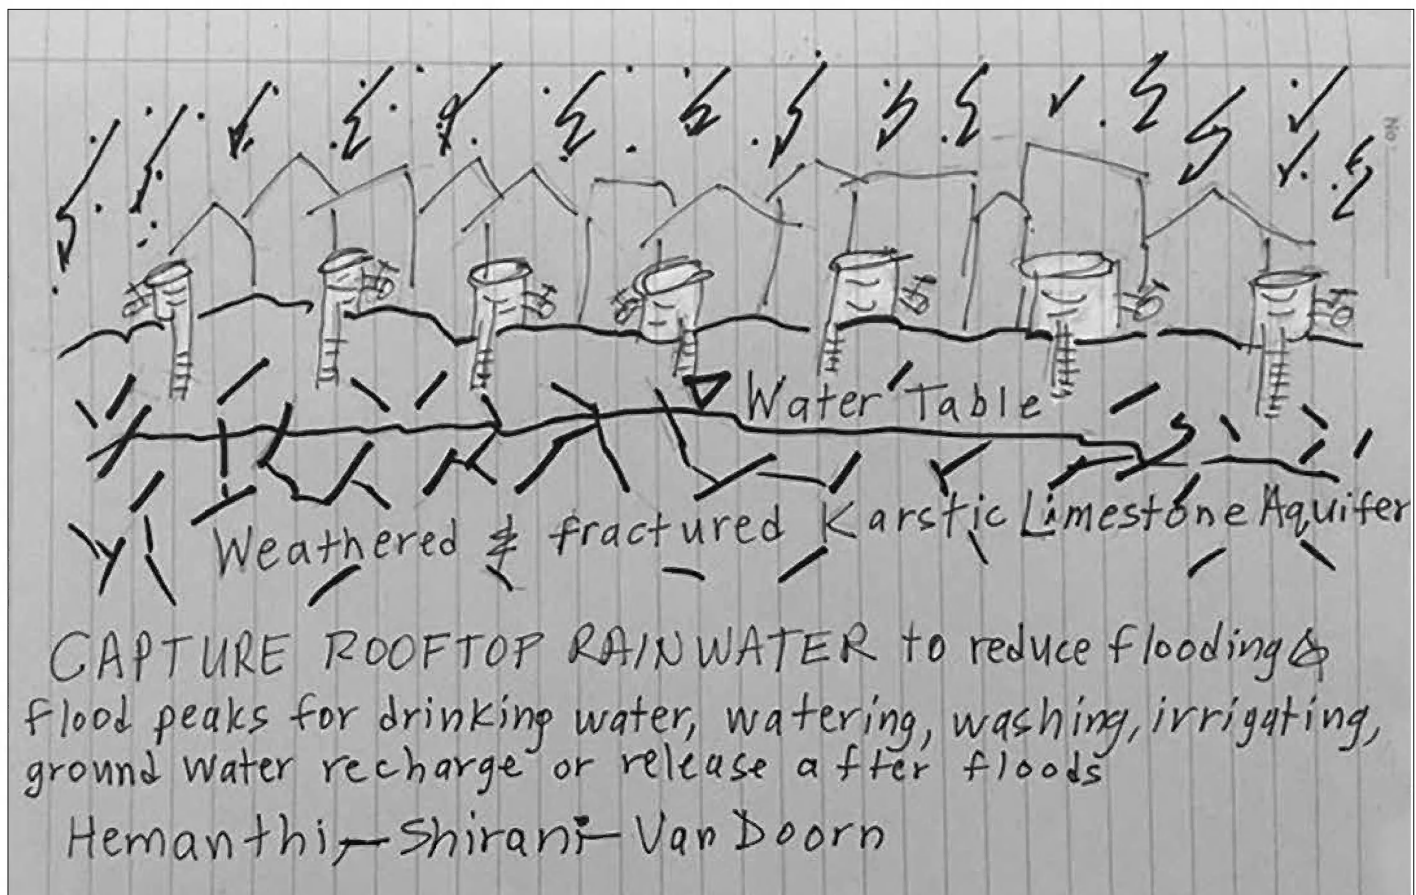 No
Water Table
Weathered & fractured Karstic Limestone Aquifer
CAPTURE ROOFTOP RAINWATER to reduce flooding &
flood peaks for drinking water, watering, washing, irrigating,
ground water recharge or release after floods
Hemanthi, Shirani Van Doorn